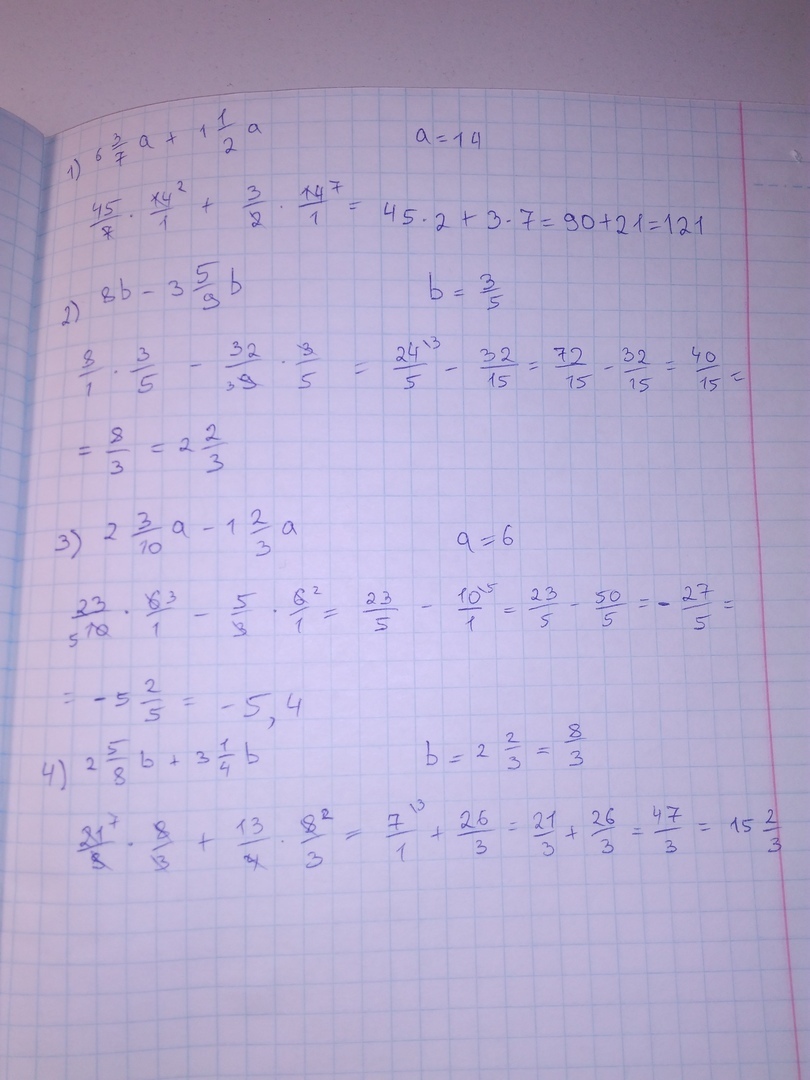 1) 6 3/7 a + 1 1/2 a a = 14
45/7 · 14²/1 + 3/2 · 14⁷/1 = 45·2 + 3·7 = 90+21=121
2) 8b − 3 5/9 b b = 3/5
8/1 · 3/5 − 32/₃9 · 3/5 = 24\3/5 − 32/15 = 72/15 − 32/15 = 40/15 =
= 8/3 = 2 2/3
3) 2 3/10 a − 1 2/3 a a = 6
23/₅10 · 6³/1 − 5/3 · 6²/1 = 23/5 − 10\5/1 = 23/5 − 50/5 = − 27/5 =
= −5 2/5 = −5,4
4) 2 5/8 b + 3 1/4 b b = 2 2/3 = 8/3
21⁷/8 · 8/3 + 13/4 · 8²/3 = 7\3/1 + 26/3 = 21/3 + 26/3 = 47/3 = 15 2/3